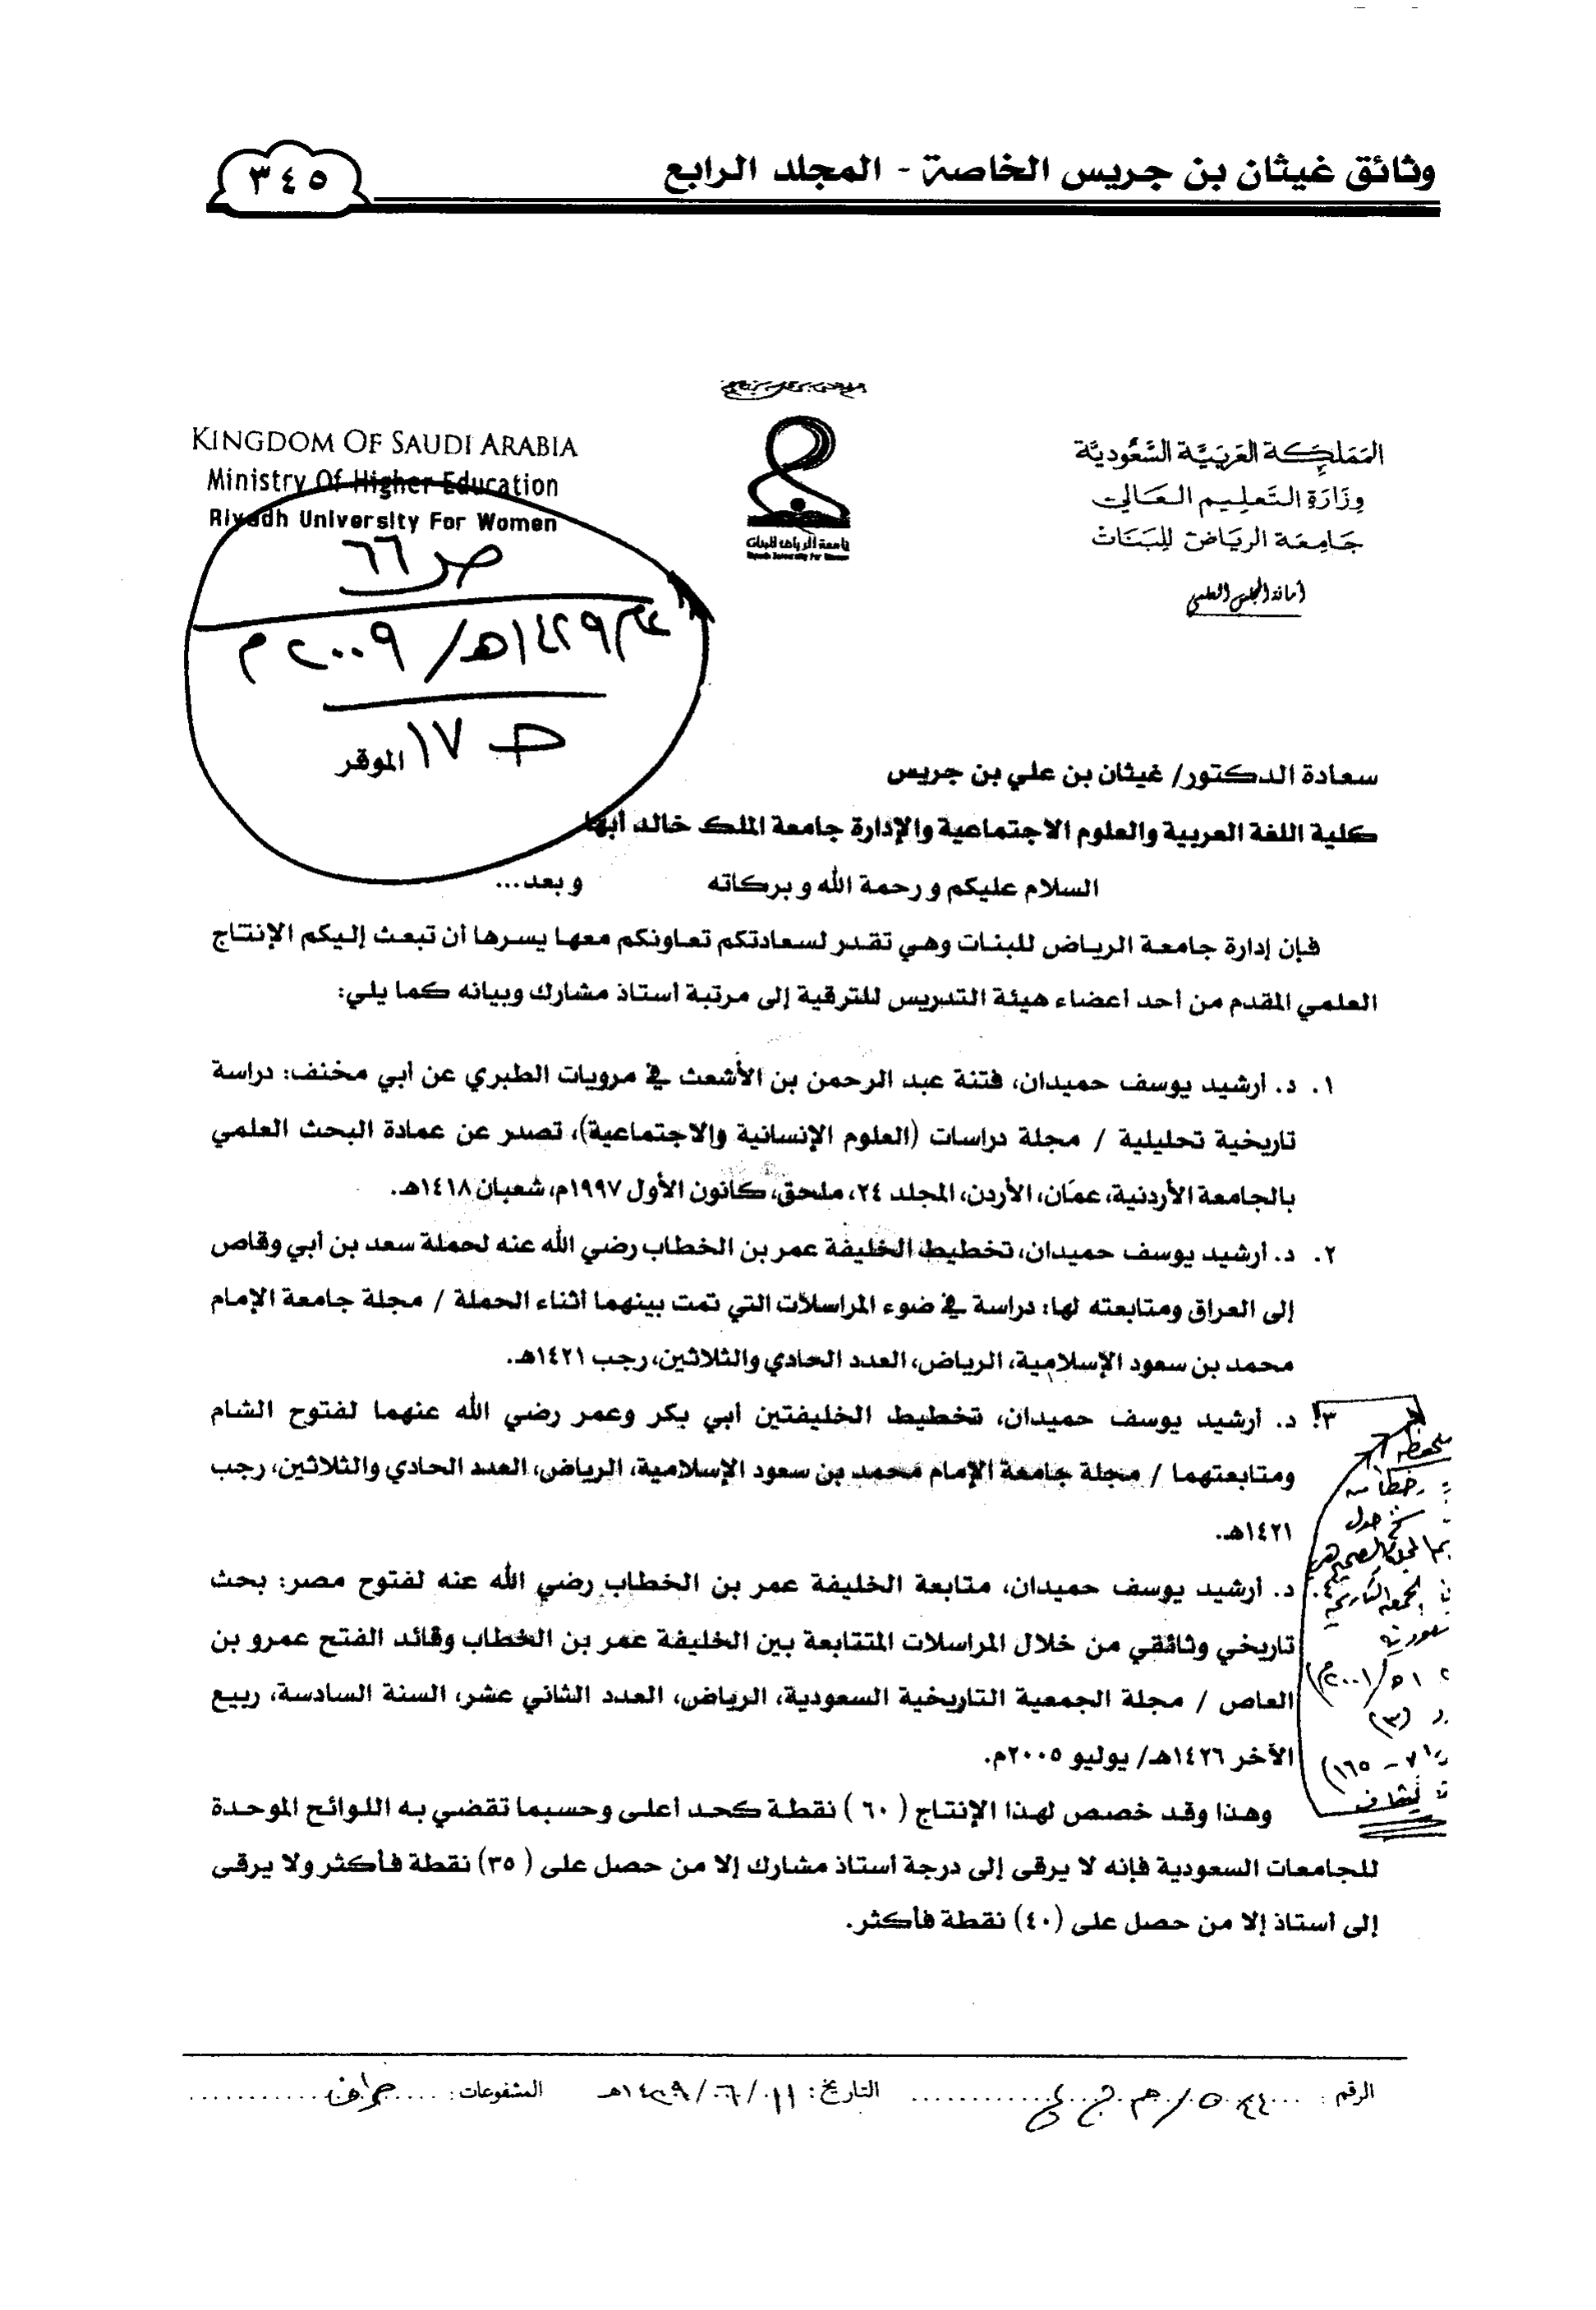 وثائق غيثان بن جريس الخاصة - المجلد الرابع
٣٤٥
المملكة العربية السعودية
وزارة التعليم العالي
جامعة الرياض للبنات
أمانة المجلس العلمي
جامعة الرياض للبنات
Riyadh University For Women
KINGDOM OF SAUDI ARABIA
Ministry Of Higher Education
Riyadh University For Women
ص ٦٦
عام ١٤٢٩هـ/ ٢٠٠٩م
حـ ١٧
سعادة الدكتور/ غيثان بن علي بن جريس الموقر
كلية اللغة العربية والعلوم الاجتماعية والإدارة جامعة الملك خالد أبها
السلام عليكم ورحمة الله وبركاته وبعد...
فإن إدارة جامعة الرياض للبنات وهي تقدر لسعادتكم تعاونكم معها يسرها أن تبعث إليكم الإنتاج
العلمي المقدم من أحد أعضاء هيئة التدريس للترقية إلى مرتبة أستاذ مشارك وبيانه كما يلي:
١. د. أرشيد يوسف حميدان، فتنة عبد الرحمن بن الأشعث في مرويات الطبري عن أبي مخنف: دراسة
تاريخية تحليلية / مجلة دراسات (العلوم الإنسانية والاجتماعية)، تصدر عن عمادة البحث العلمي
بالجامعة الأردنية، عمّان، الأردن، المجلد ٢٤، ملحق، كانون الأول ١٩٩٧م، شعبان ١٤١٨هـ.
٢. د. أرشيد يوسف حميدان، تخطيط الخليفة عمر بن الخطاب رضي الله عنه لحملة سعد بن أبي وقاص
إلى العراق ومتابعته لها: دراسة في ضوء المراسلات التي تمت بينهما أثناء الحملة / مجلة جامعة الإمام
محمد بن سعود الإسلامية، الرياض، العدد الحادي والثلاثين، رجب ١٤٢١هـ.
٣. د. أرشيد يوسف حميدان، تخطيط الخليفتين أبي بكر وعمر رضي الله عنهما لفتوح الشام
ومتابعتهما / مجلة جامعة الإمام محمد بن سعود الإسلامية، الرياض، العدد الحادي والثلاثين، رجب
١٤٢١هـ.
٤. د. أرشيد يوسف حميدان، متابعة الخليفة عمر بن الخطاب رضي الله عنه لفتوح مصر: بحث
تاريخي وثائقي من خلال المراسلات المتتابعة بين الخليفة عمر بن الخطاب وقائد الفتح عمرو بن
العاص / مجلة الجمعية التاريخية السعودية، الرياض، العدد الثاني عشر، السنة السادسة، ربيع
الآخر ١٤٢٦هـ/ يوليو ٢٠٠٥م.
وهذا وقد خصص لهذا الإنتاج (٦٠) نقطة كحد أعلى وحسبما تقضي به اللوائح الموحدة
للجامعات السعودية فإنه لا يرقى إلى درجة أستاذ مشارك إلا من حصل على (٣٥) نقطة فأكثر ولا يرقى
إلى أستاذ إلا من حصل على (٤٠) نقطة فأكثر.
ملحوظة
خطأ
التاريخية
٢٠٠١م)
(٣)
١٦٥)
الرقم: التاريخ: ١١/٠٦/١٤٢٩هـ المشفوعات: